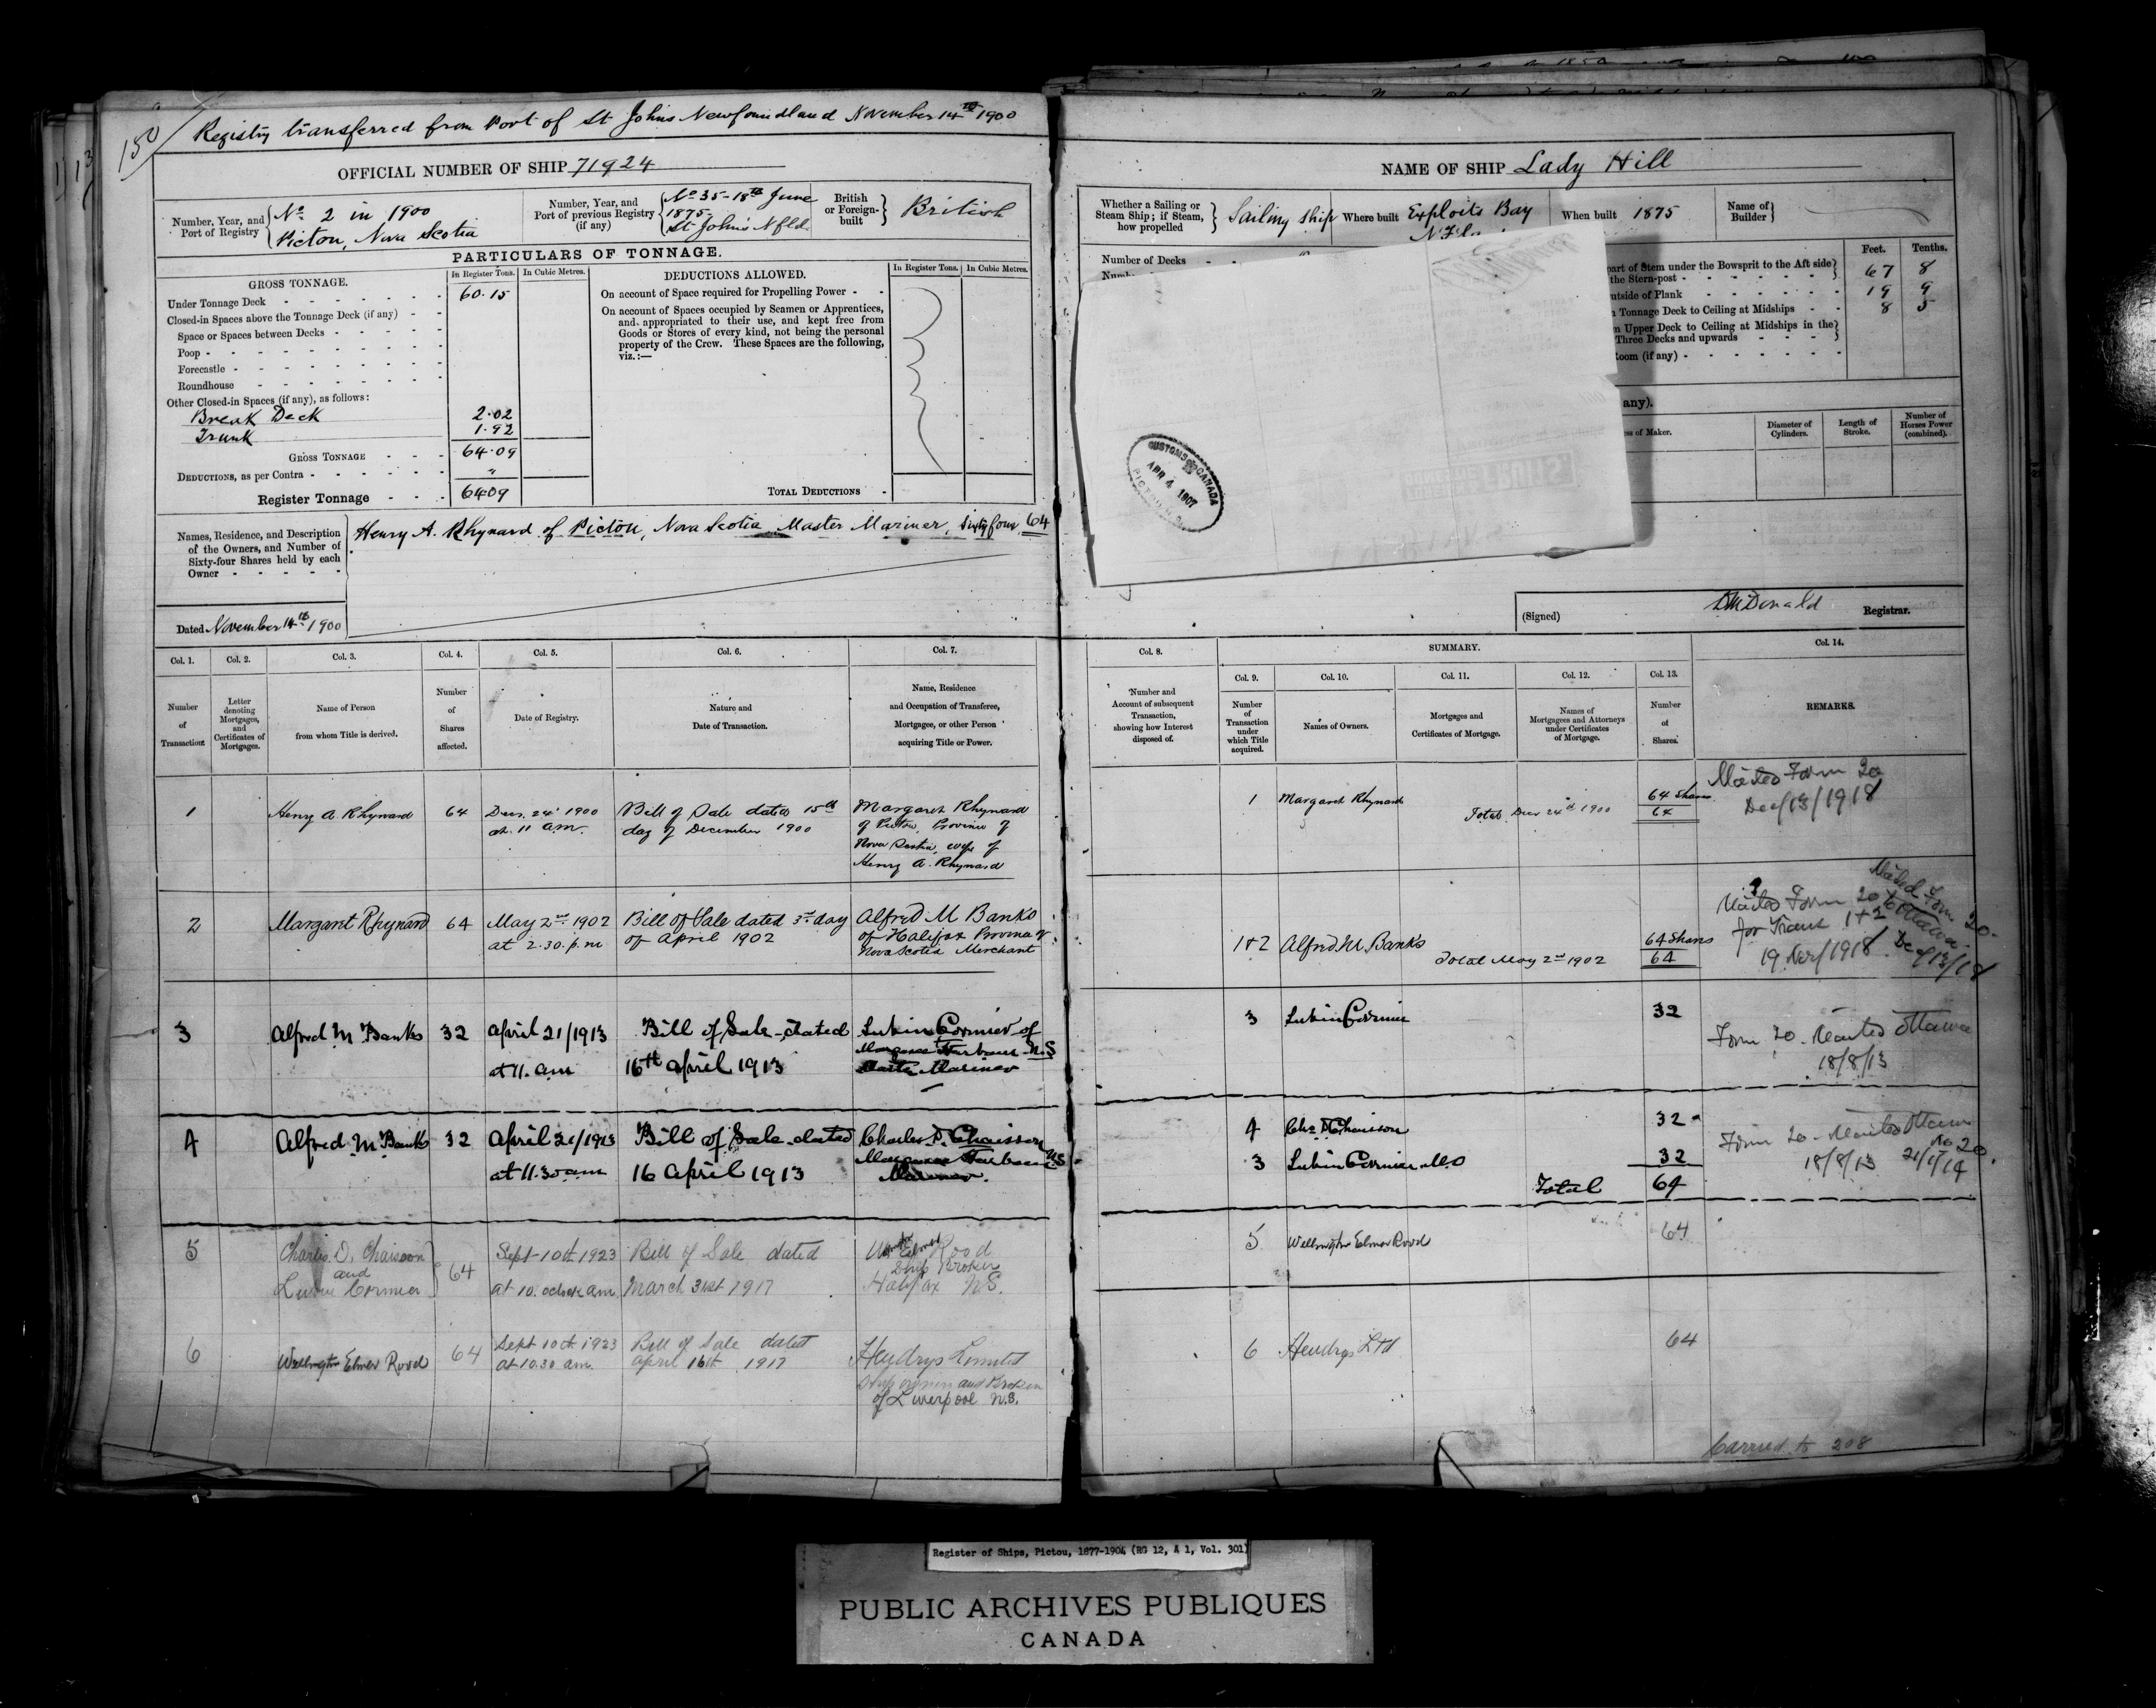 150
Registry transferred from Port of St Johns Newfoundland November 14th 1900
OFFICIAL NUMBER OF SHIP 71924
Number, Year, and Port of Registry
No. 2 in 1900
Pictou, Nova Scotia
Number, Year, and Port of previous Registry (if any)
No 35 - 18th June
1875
St John's Nfld.
British or Foreign-built
British
PARTICULARS OF TONNAGE.
GROSS TONNAGE.
In Register Tons.
In Cubic Metres.
Under Tonnage Deck 60.15
Closed-in Spaces above the Tonnage Deck (if any)
Space or Spaces between Decks
Poop
Forecastle
Roundhouse
Other Closed-in Spaces (if any), as follows:
Break Deck 2.02
Trunk 1.92
GROSS TONNAGE 64.09
DEDUCTIONS, as per Contra "
Register Tonnage 64.09
DEDUCTIONS ALLOWED.
In Register Tons.
In Cubic Metres.
On account of Space required for Propelling Power
On account of Spaces occupied by Seamen or Apprentices,
and appropriated to their use, and kept free from
Goods or Stores of every kind, not being the personal
property of the Crew. These Spaces are the following,
viz.:—
TOTAL DEDUCTIONS
Names, Residence, and Description
of the Owners, and Number of
Sixty-four Shares held by each
Owner
Henry A. Rhynard of Pictou, Nova Scotia, Master Mariner, sixty four 64
Dated November 14th 1900
Col. 1.
Number of Transaction.
Col. 2.
Letter denoting Mortgages, and Certificates of Mortgages.
Col. 3.
Name of Person from whom Title is derived.
Col. 4.
Number of Shares affected.
Col. 5.
Date of Registry.
Col. 6.
Nature and Date of Transaction.
Col. 7.
Name, Residence and Occupation of Transferee, Mortgagee, or other Person acquiring Title or Power.
1 Henry A. Rhynard 64 Decr. 24th 1900 Bill of Sale dated 15th Margaret Rhynard
at 11 am. day of December 1900 of Pictou, Province of
Nova Scotia, wife of
Henry A. Rhynard
2 Margaret Rhynard 64 May 2nd 1902 Bill of Sale dated 3rd day Alfred M Banks
at 2.30. p.m of April 1902 of Halifax Province of
Nova Scotia Merchant
3 Alfred M Banks 32 April 21/1913 Bill of Sale dated Lubin Cormier of
at 11. am 16th April 1913 Margaree Harbour N.S
Master Mariner
4 Alfred M. Banks 32 April 21/1913 Bill of Sale dated Charles D. Chaisson
at 11.30 am 16 April 1913 Margaree Harbour N.S
Mariner.
5 Charles D. Chaisson 64 Sept 10th 1923 Bill of Sale dated Elmer Rood
and at 10. oclock am. March 31st 1917 Ship Broker
Cormier Halifax N.S.
6 Wellington Elmer Rood 64 Sept 10th 1923 Bill of Sale dated Hendrys Limited
at 10.30 am. April 16th 1917 Ship owners and Broker
of Liverpool N.S.
NAME OF SHIP Lady Hill
Whether a Sailing or Steam Ship; if Steam, how propelled
Sailing ship
Where built
Exploits Bay
When built
1875
Name of Builder
Number of Decks
Feet.
Tenths.
part of Stem under the Bowsprit to the Aft side
the Stern-post 67 8
utside of Plank 19 9
Tonnage Deck to Ceiling at Midships 8 5
Upper Deck to Ceiling at Midships in the
Three Decks and upwards
Room (if any)
any).
of Maker.
Diameter of Cylinders.
Length of Stroke.
Number of Horses Power (combined).
CUSTOMS CANADA
APR 4 1907
PICTOU N.S.
(Signed) D McDonald Registrar.
Col. 8.
Number and Account of subsequent Transaction, showing how Interest disposed of.
SUMMARY.
Col. 9.
Number of Transaction under which Title acquired.
Col. 10.
Names of Owners.
Col. 11.
Mortgages and Certificates of Mortgage.
Col. 12.
Names of Mortgagees and Attorneys under Certificates of Mortgage.
Col. 13.
Number of Shares.
Col. 14.
REMARKS.
1 Margaret Rhynard 64 Shares
Total Decr 24th 1900 64
Form 20
Dec/13/1918
1+2 Alfred M. Banks 64 Shares
Total May 2nd 1902 64
Form 20 to Ottawa
for Trans 1+2
19 Nov/1918
Form 20.
Dec/13/18
3 Lubin Cormier 32
Form 20. Mailed Ottawa
18/8/13
4 Chs D Chaisson 32
3 Lubin Cormier 32
Total 64
Form 20 - Mailed Ottawa
18/8/13
No 20.
5 Wellington Elmer Rood 64
6 Hendrys Ltd 64
Carried to 208
Register of Ships, Pictou, 1877-1904 (RG 12, A 1, Vol. 301)
PUBLIC ARCHIVES PUBLIQUES
CANADA